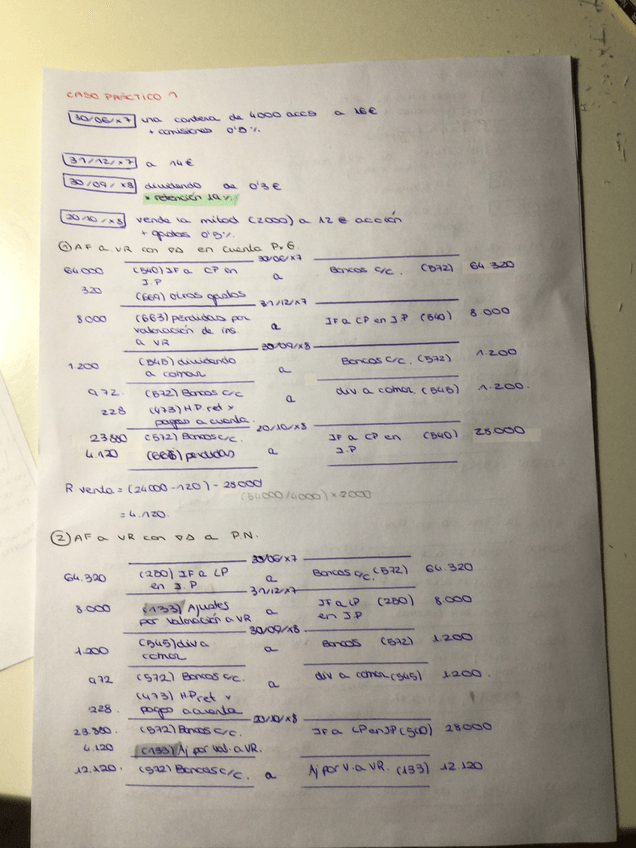 CASO PRÁCTICO 1
30/06/x7 una cartera de 4000 accs a 16€
+ comisiones 0'5%
31/12/x7 a 14€
30/09/x8 dividendo de 0'3€
* retención 19%
20/10/x8 vende la mitad (2000) a 12€ acción
+ gastos 0'5%
① AF a VR con en cuenta PyG.
30/06/x7
64.000 (540) IF a CP en a Bancos c/c. (572) 64.320
I.P
320 (669) otros gastos
31/12/x7
8000 (663) pérdidas por IF a CP en I.P (540) 8.000
valoración de ins a
a VR
30/09/x8
1.200 (545) dividendo a Bancos c/c. (572) 1.200
a cobrar
972. (572) Bancos c/c a div a cobrar (545) 1.200.
228 (473) H.P ret y
pagos a cuenta
20/10/x8
23880 (572) Bancos c/c. IF a CP en (540) 28.000
4.120 (666) pérdidas a I.P
R venta = (24000-120) - 28000
(54000/4000) x 2000
= 4.120.
② AF a VR con a P.N.
30/06/x7
64.320 (250) IF a LP a Bancos c/c (572) 64.320
en I.P
31/12/x7
8.000 (133) Ajustes a IF a LP (250) 8.000
por valoración a VR en I.P
30/09/x8
1.200 (545) div a a Bancos (572) 1.200
cobrar
972 (572) Bancos c/c. a div a cobrar (545) 1200.
(473) HP ret y
228. pagos a cuenta
20/10/x8
23.880. (572) Bancos c/c. IF a LP en IP (540) 28000
4.120 (133) Aj por val. a VR.
12.120. (572) Bancos c/c. a Aj por V. a VR. (133) 12.120